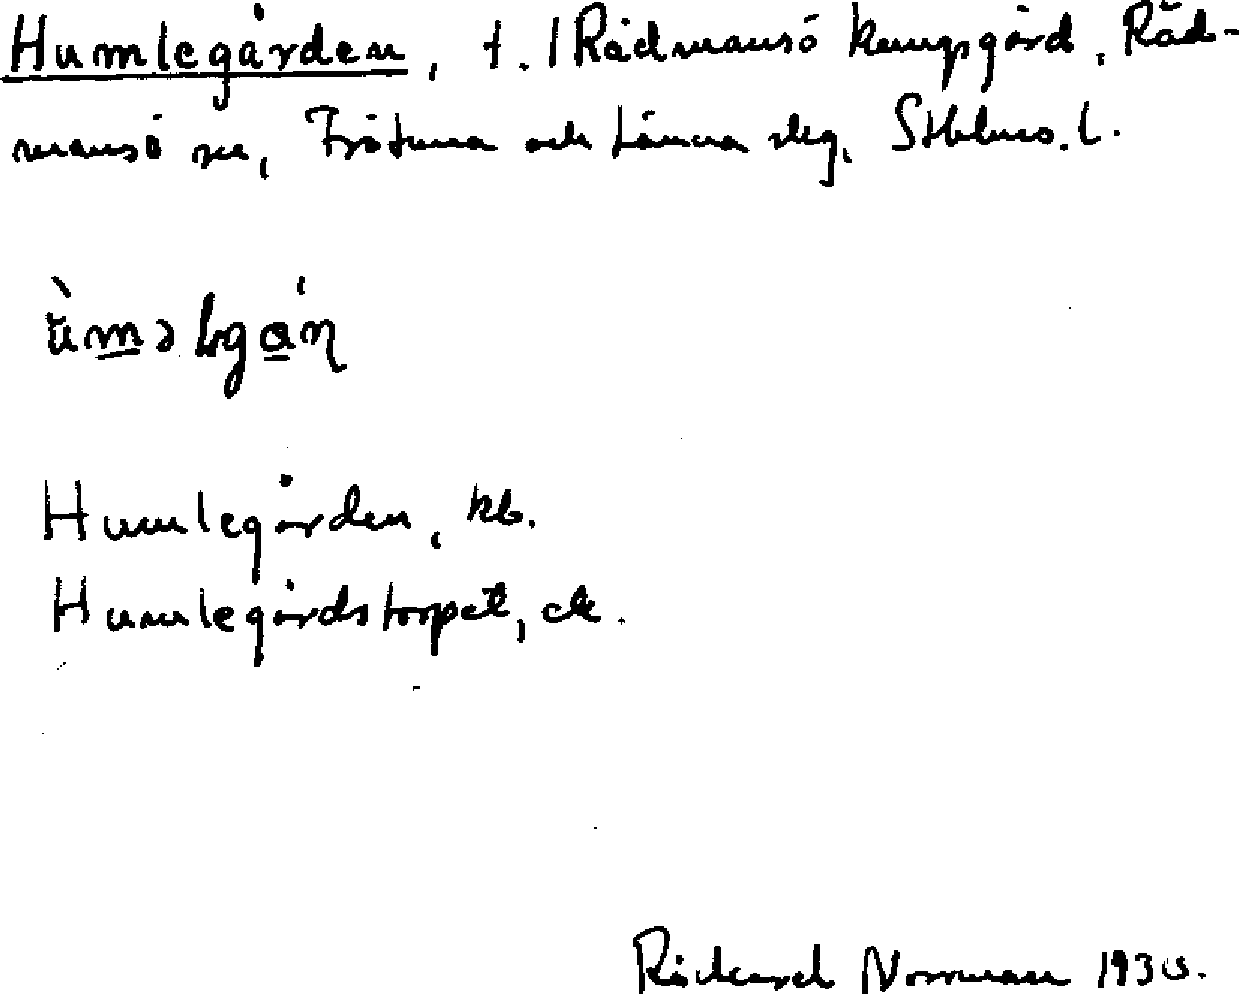 Humlegården, t. / Rådmansö kungsgård, Råd-
mansö sn, Frötuna och Länna slg, Sthlms. l.
ùməlgán
Humlegården, kb.
Humlegårdstorpet, ek.
Rickard Norrman 1930.